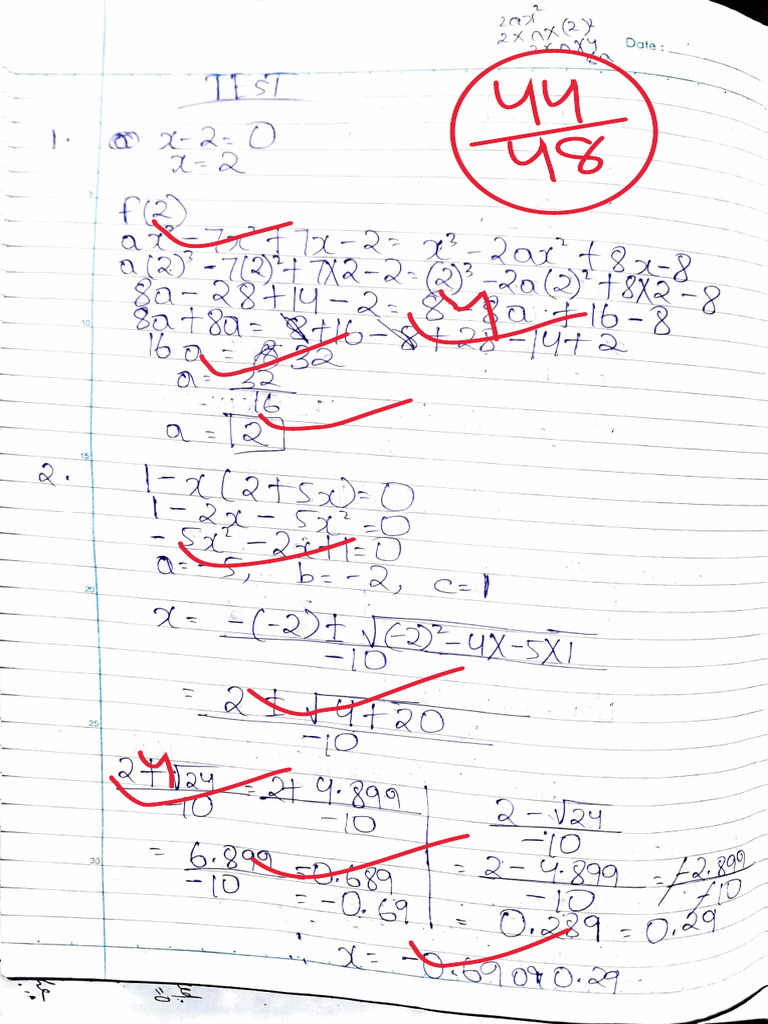 2ax²
2×a×(2)²
Date :
TEST
44
48
1. x-2=0
x=2
f(2)
ax³-7x²+7x-2= x³-2ax²+8x-8
a(2)³-7(2)²+7×2-2=(2)³-2a(2)²+8×2-8
8a-28+14-2= 8-8a+16-8
4
8a+8a= 8+16-8+28-14+2
16a= 32
a= 32
16
a = 2
2. 1-x(2+5x)=0
1-2x-5x²=0
-5x²-2x+1=0
a=-5, b=-2, c=1
x= -(-2)±√(-2)²-4×-5×1
-10
= 2±√4+20
-10
4
2+√24 = 2+4.899
-10 -10
= 6.899 = 0.689
-10
= -0.69
2-√24
-10
= 2-4.899 = -2.899
-10 -10
= 0.289 = 0.29
∴ x= -0.69 or 0.29
5
10
15
20
25
30